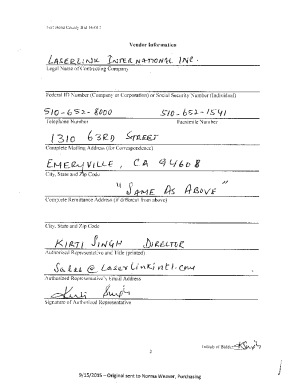 Fort Bend County Bid
Vendor Information
LASERLINK INTERNATIONAL INC.
Legal Name of Contracting Company
Federal ID Number (Company or Corporation) or Social Security Number (Individual)
510-652-8000 510-652-1541
Telephone Number Facsimile Number
1310 63RD STREET
Complete Mailing Address (for Correspondence)
EMERYVILLE, CA 94608
City, State and Zip Code
"SAME AS ABOVE"
Complete Remittance Address (if different from above)
City, State and Zip Code
KIRTI SINGH DIRECTOR
Authorized Representative and Title (printed)
Sales@Laserlinkintl.com
Authorized Representative's Email Address
Kirti Singh
Signature of Authorized Representative
Initials of Bidder:
2
9/15/2015 - Original sent to Norma Weaver, Purchasing